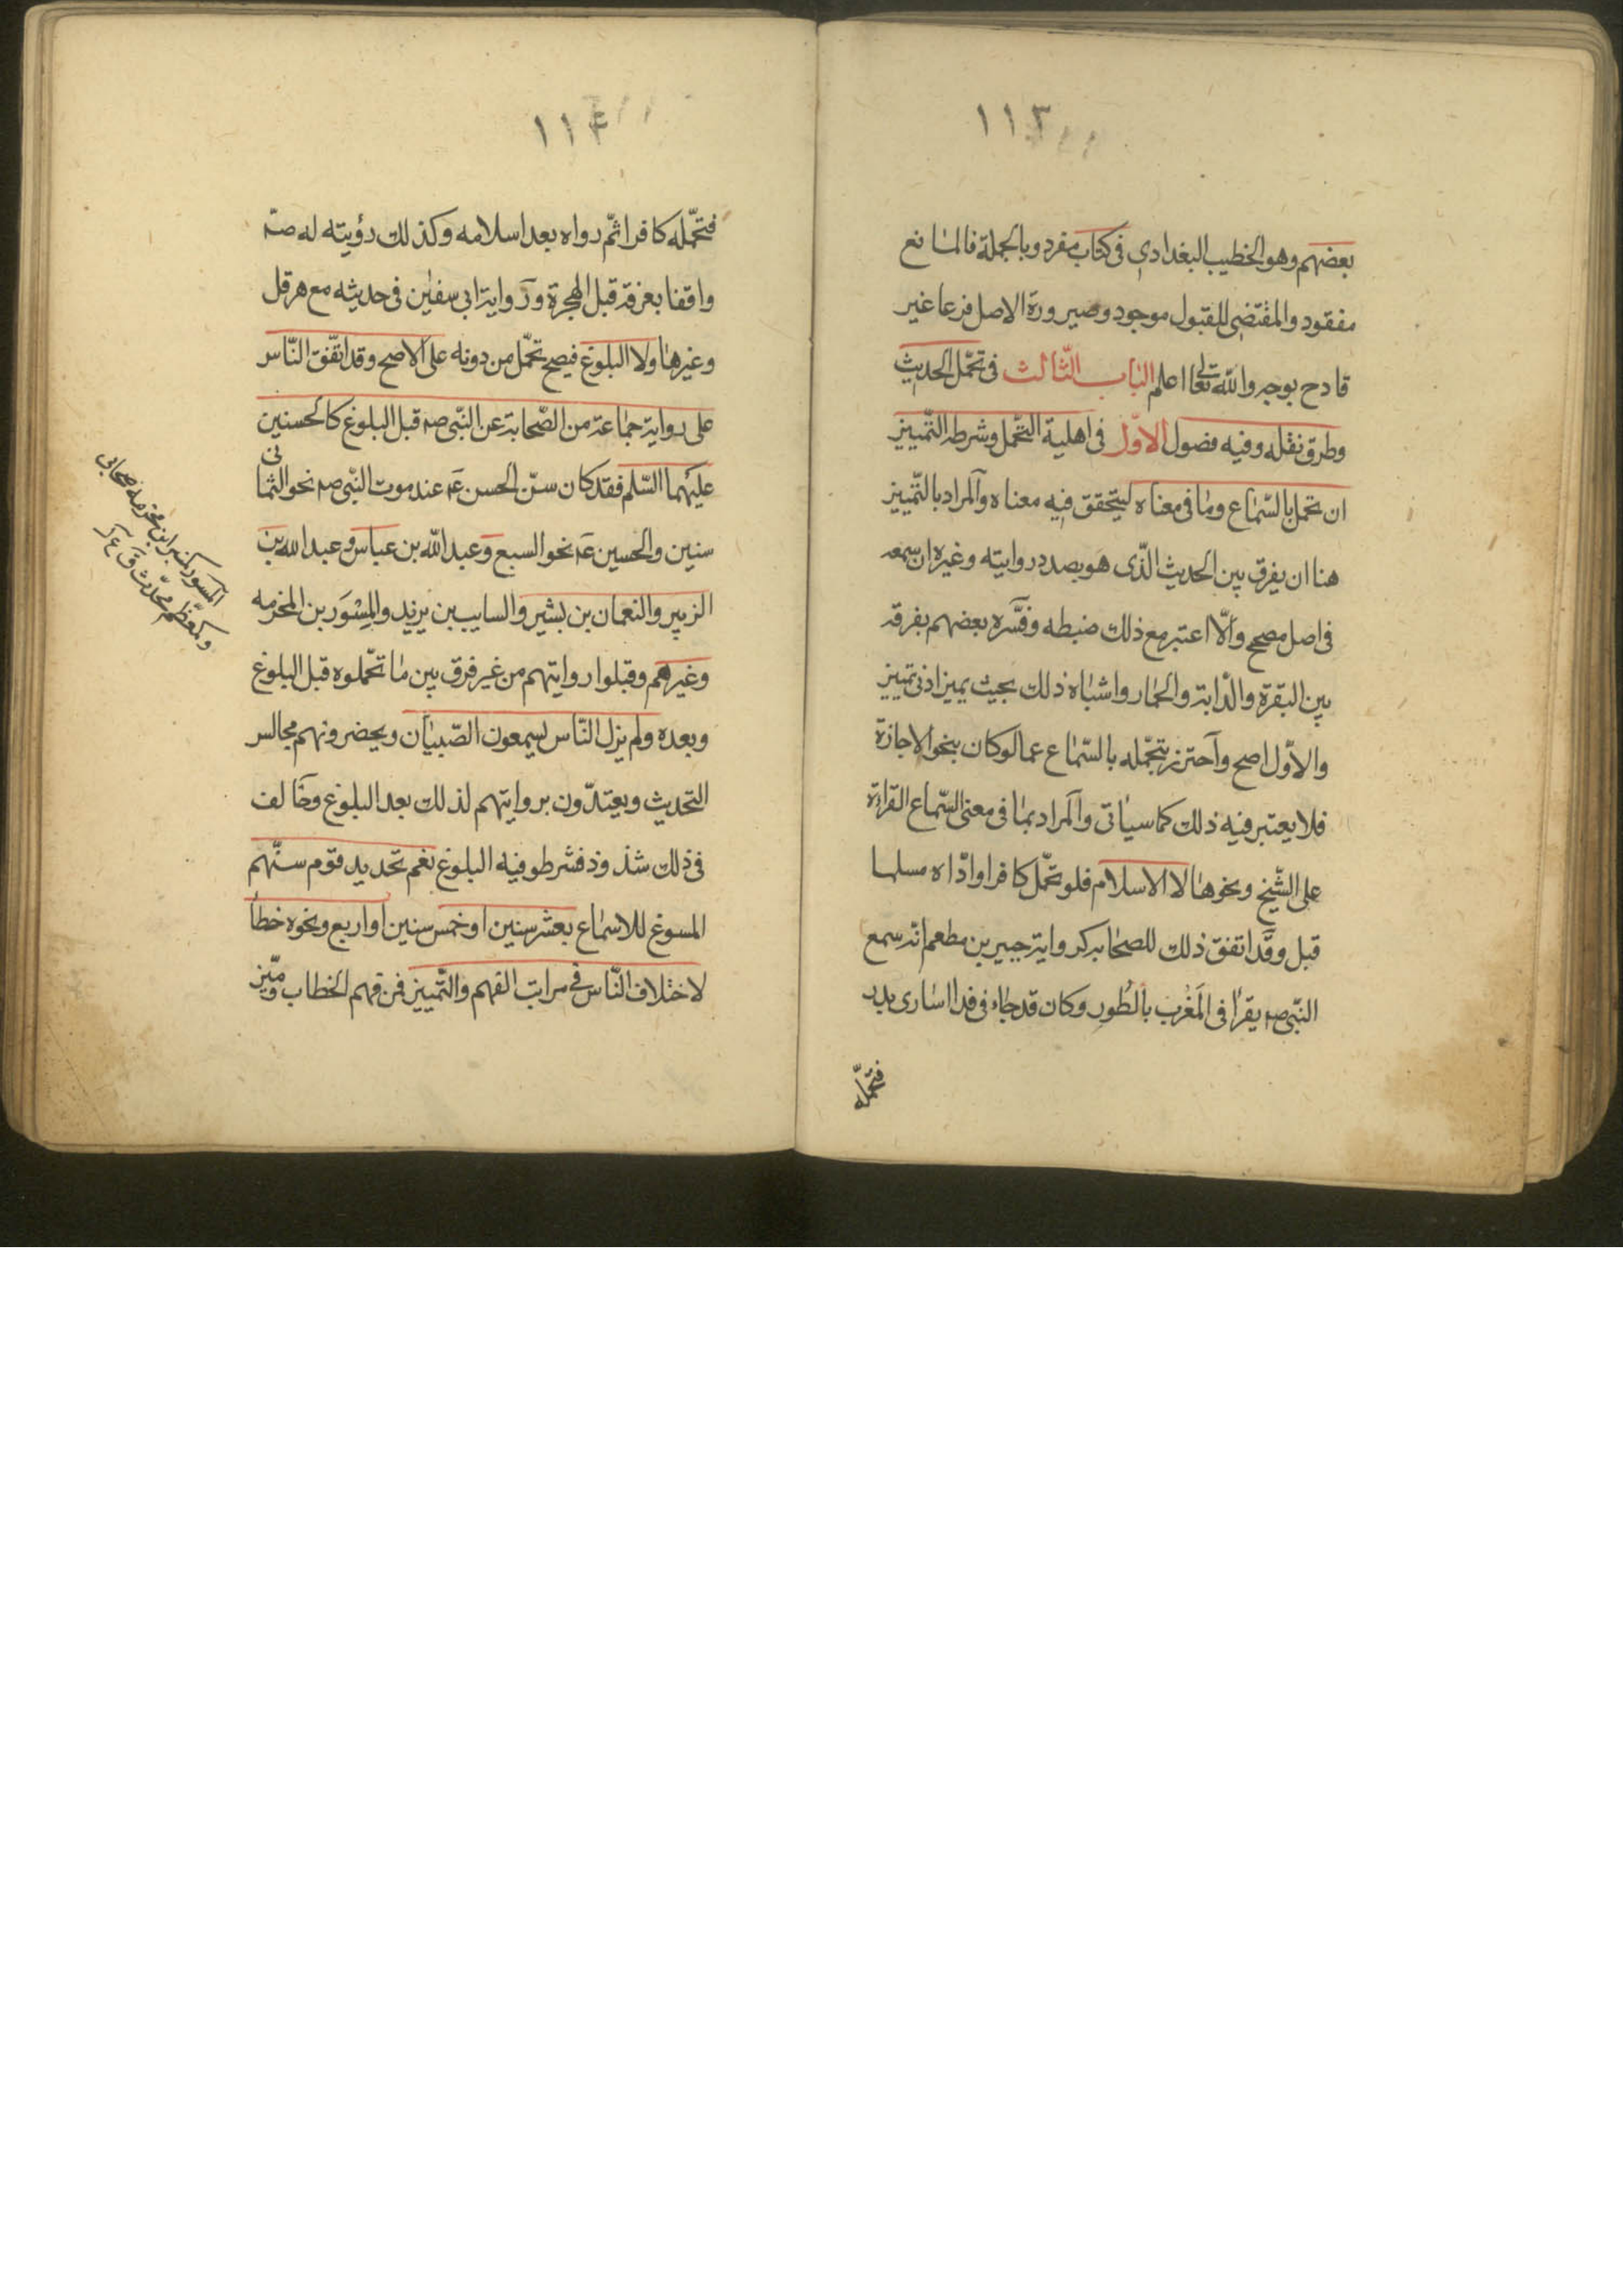 ١١٣
بعضهم وهو الخطيب البغدادي فى كتاب مفرد وبالجملة فالمانع
مفقود والمقتضى للقبول موجود وصيرورة الاصل فرعا غير
قادح بوجه والله تعالى اعلم الباب الثالث فى تحمّل الحديث
وطرق نقله وفيه فصول الاوّل فى اهلية التحمّل وشرطه التّمييز
ان تحمل بالسّماع وما فى معناه ليتحقق فيه معناه والمراد بالتّمييز
هنا ان يفرق بين الحديث الّذى هو بصدد روايته وغيره ان سمعه
فى اصل مصحح والّا اعتبر مع ذلك ضبطه وفسّره بعضهم بفرقه
بين البقرة والدابة والحمار واشباه ذلك بحيث يميز ادنى تمييز
والاوّل اصح واحترز بتحمّله بالسّماع عما لو كان بنحو الاجازة
فلا يعتبر فيه ذلك كما سياتى والمراد بما فى معنى السّماع القراءة
على الشّيخ ونحوها لا الاسلام فلو تحمّل كافرا وادّاه مسلما
قبل وقد اتفق ذلك للصحابه كرواية جبير بن مطعم انه سمع
النّبى صه يقرأ فى المَغْرب بالطُور وكان قد جاء فى فدا اسارى بدر
فتحمّله
١١٤
فتحمّله كافرا ثمّ رواه بعد اسلامه وكذلك رؤيته له صه
واقفا بعرفة قبل الهجرة ورواية ابى سفين فى حديثه مع هرقل
وغيرها ولا البلوغ فيصح تحمّل من دونه على الاصح وقد اتّفق النّاس
على رواية جماعة من الصّحابة عن النّبى صه قبل البلوغ كالحسنين
عليهما السّلم فقد كان سنّ الحسن ع عند موت النّبى صه نحو الثمانى
سنين والحسين ع نحو السبع وعبد الله بن عباس وعبد الله بن
الزبير والنعمان بن بشير والسايب بن يزيد والمِسْوَر بن المخرمه
وغيرهم وقبلوا روايتهم من غير فرق بين ما تحّملوه قبل البلوغ
وبعده ولم يزل النّاس يسمعون الصّبيان ويحضرونهم مجالس
التحديث ويعتدّون بروايتهم لذلك بعد البلوغ وخالف
فى ذلك شذوذ فشرطوا فيه البلوغ نعم تحديد قوم سنّهم
المسوغ للاسماع بعشر سنين او خمس سنين او اربع ونحوه خطأ
لاختلاف النّاس فى مراتب الفهم والتّمييز فمن فهم الخطاب وميّز
المسور كمنبر ابن مخرمه صحابى
وكمعظّم محدّث ق